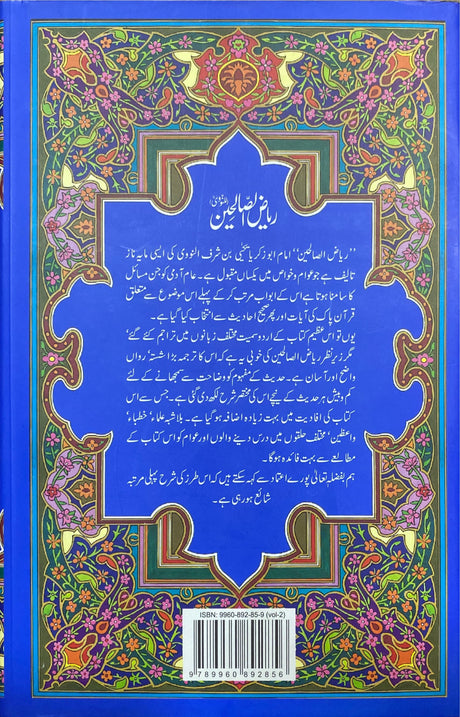 ریاض الصّالحین (اردو)
"ریاض الصالحین" امام ابو زکریا یحییٰ بن شرف النووی کی ایسی مایہ ناز
تالیف ہے جو عوام و خواص میں یکساں مقبول ہے۔ عام آدمی کو جن مسائل
کا سامنا ہوتا ہے اس کے ابواب مرتب کر کے پہلے اس موضوع سے متعلق
قرآن پاک کی آیات اور پھر صحیح احادیث سے انتخاب کیا گیا ہے۔
یوں تو اس عظیم کتاب کے اردو سمیت مختلف زبانوں میں تراجم کئے گئے'
مگر زیر نظر ریاض الصالحین کی خوبی یہ ہے کہ اس کا ترجمہ بڑا شستہ' رواں
واضح اور آسان ہے۔ حدیث کے مفہوم کو وضاحت سے سمجھانے کے لئے
کم و بیش ہر حدیث کے نیچے اس کی مختصر شرح لکھ دی گئی ہے۔ جس سے اس
کتاب کی افادیت میں بہت زیادہ اضافہ ہو گیا ہے۔ بلاشبہ علماء' خطباء'
واعظین' مختلف حلقوں میں درس دینے والوں اور عوام کو اس کتاب کے
مطالعے سے بہت فائدہ ہو گا۔
ہم بفضلہ تعالیٰ پورے اعتماد سے کہہ سکتے ہیں کہ اس طرز کی شرح پہلی مرتبہ
شائع ہو رہی ہے۔
ISBN: 9960-892-85-9 (vol-2)
9 789960 892856